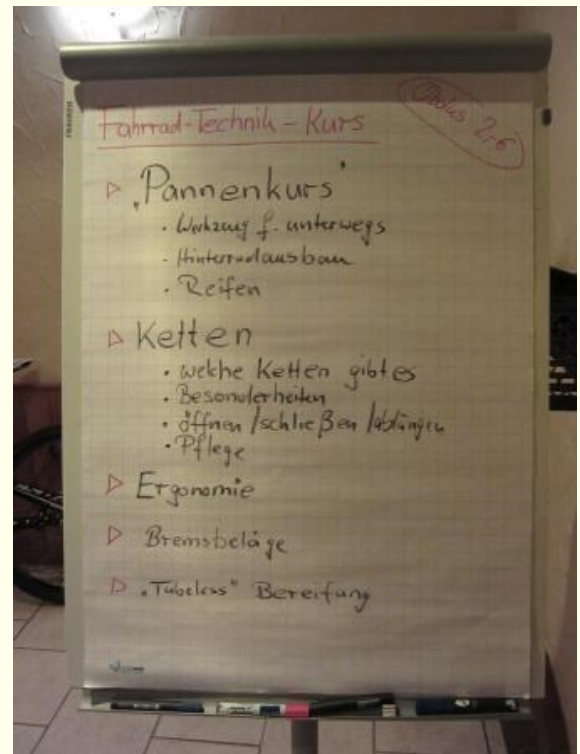 Fahrrad-Technik-Kurs
Obolus 2,-€
▷ „Pannenkurs"
· Werkzeug f. unterwegs
· Hinterradausbau
· Reifen
▷ Ketten
· welche Ketten gibt es
· Besonderheiten
· öffnen / schließen / ablängen
· Pflege
▷ Ergonomie
▷ Bremsbeläge
▷ „Tubeless" Bereifung